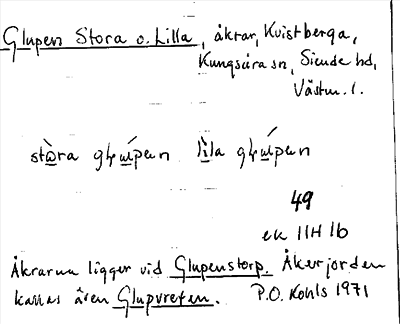 Glupen Stora o. Lilla, åkrar, Kvistberga,
Kungsåra sn, Siende hd,
Västm. l.
stòra glúpen lìla glúpen
49
ek 11H 1b
Åkrarna ligger vid Glupenstorp. Åkerjorden
kallas även Glupvreten. P.O. Kohls 1971